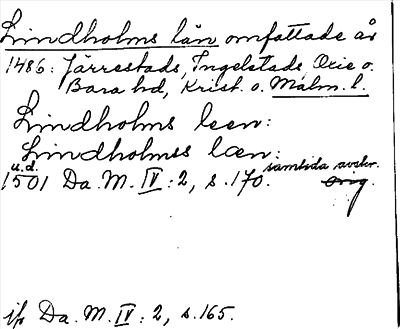 Lindholms län omfattade år
1486: Järrestads, Ingelstads, Oxie o.
Bara hd, Krist. o. Malm. l.
Lindholms leen:
Lindholmss læn:
u.d. samtida avskr.
1501 Da. M. IV: 2, s. 170. orig.
jfr Da. M. IV: 2, s. 165.